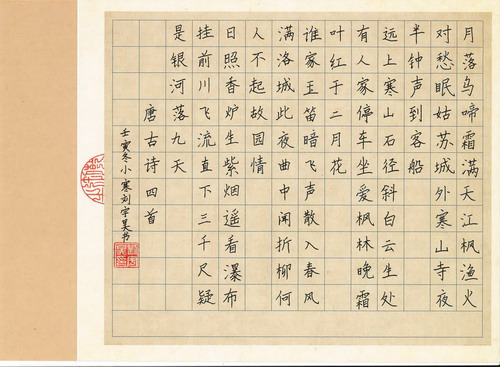 月落乌啼霜满天江枫渔火
对愁眠姑苏城外寒山寺夜
半钟声到客船
远上寒山石径斜白云生处
有人家停车坐爱枫林晚霜
叶红于二月花
谁家玉笛暗飞声散入春风
满洛城此夜曲中闻折柳何
人不起故园情
日照香炉生紫烟遥看瀑布
挂前川飞流直下三千尺疑
是银河落九天
唐古诗四首
壬寅冬小寒刘宇昊书